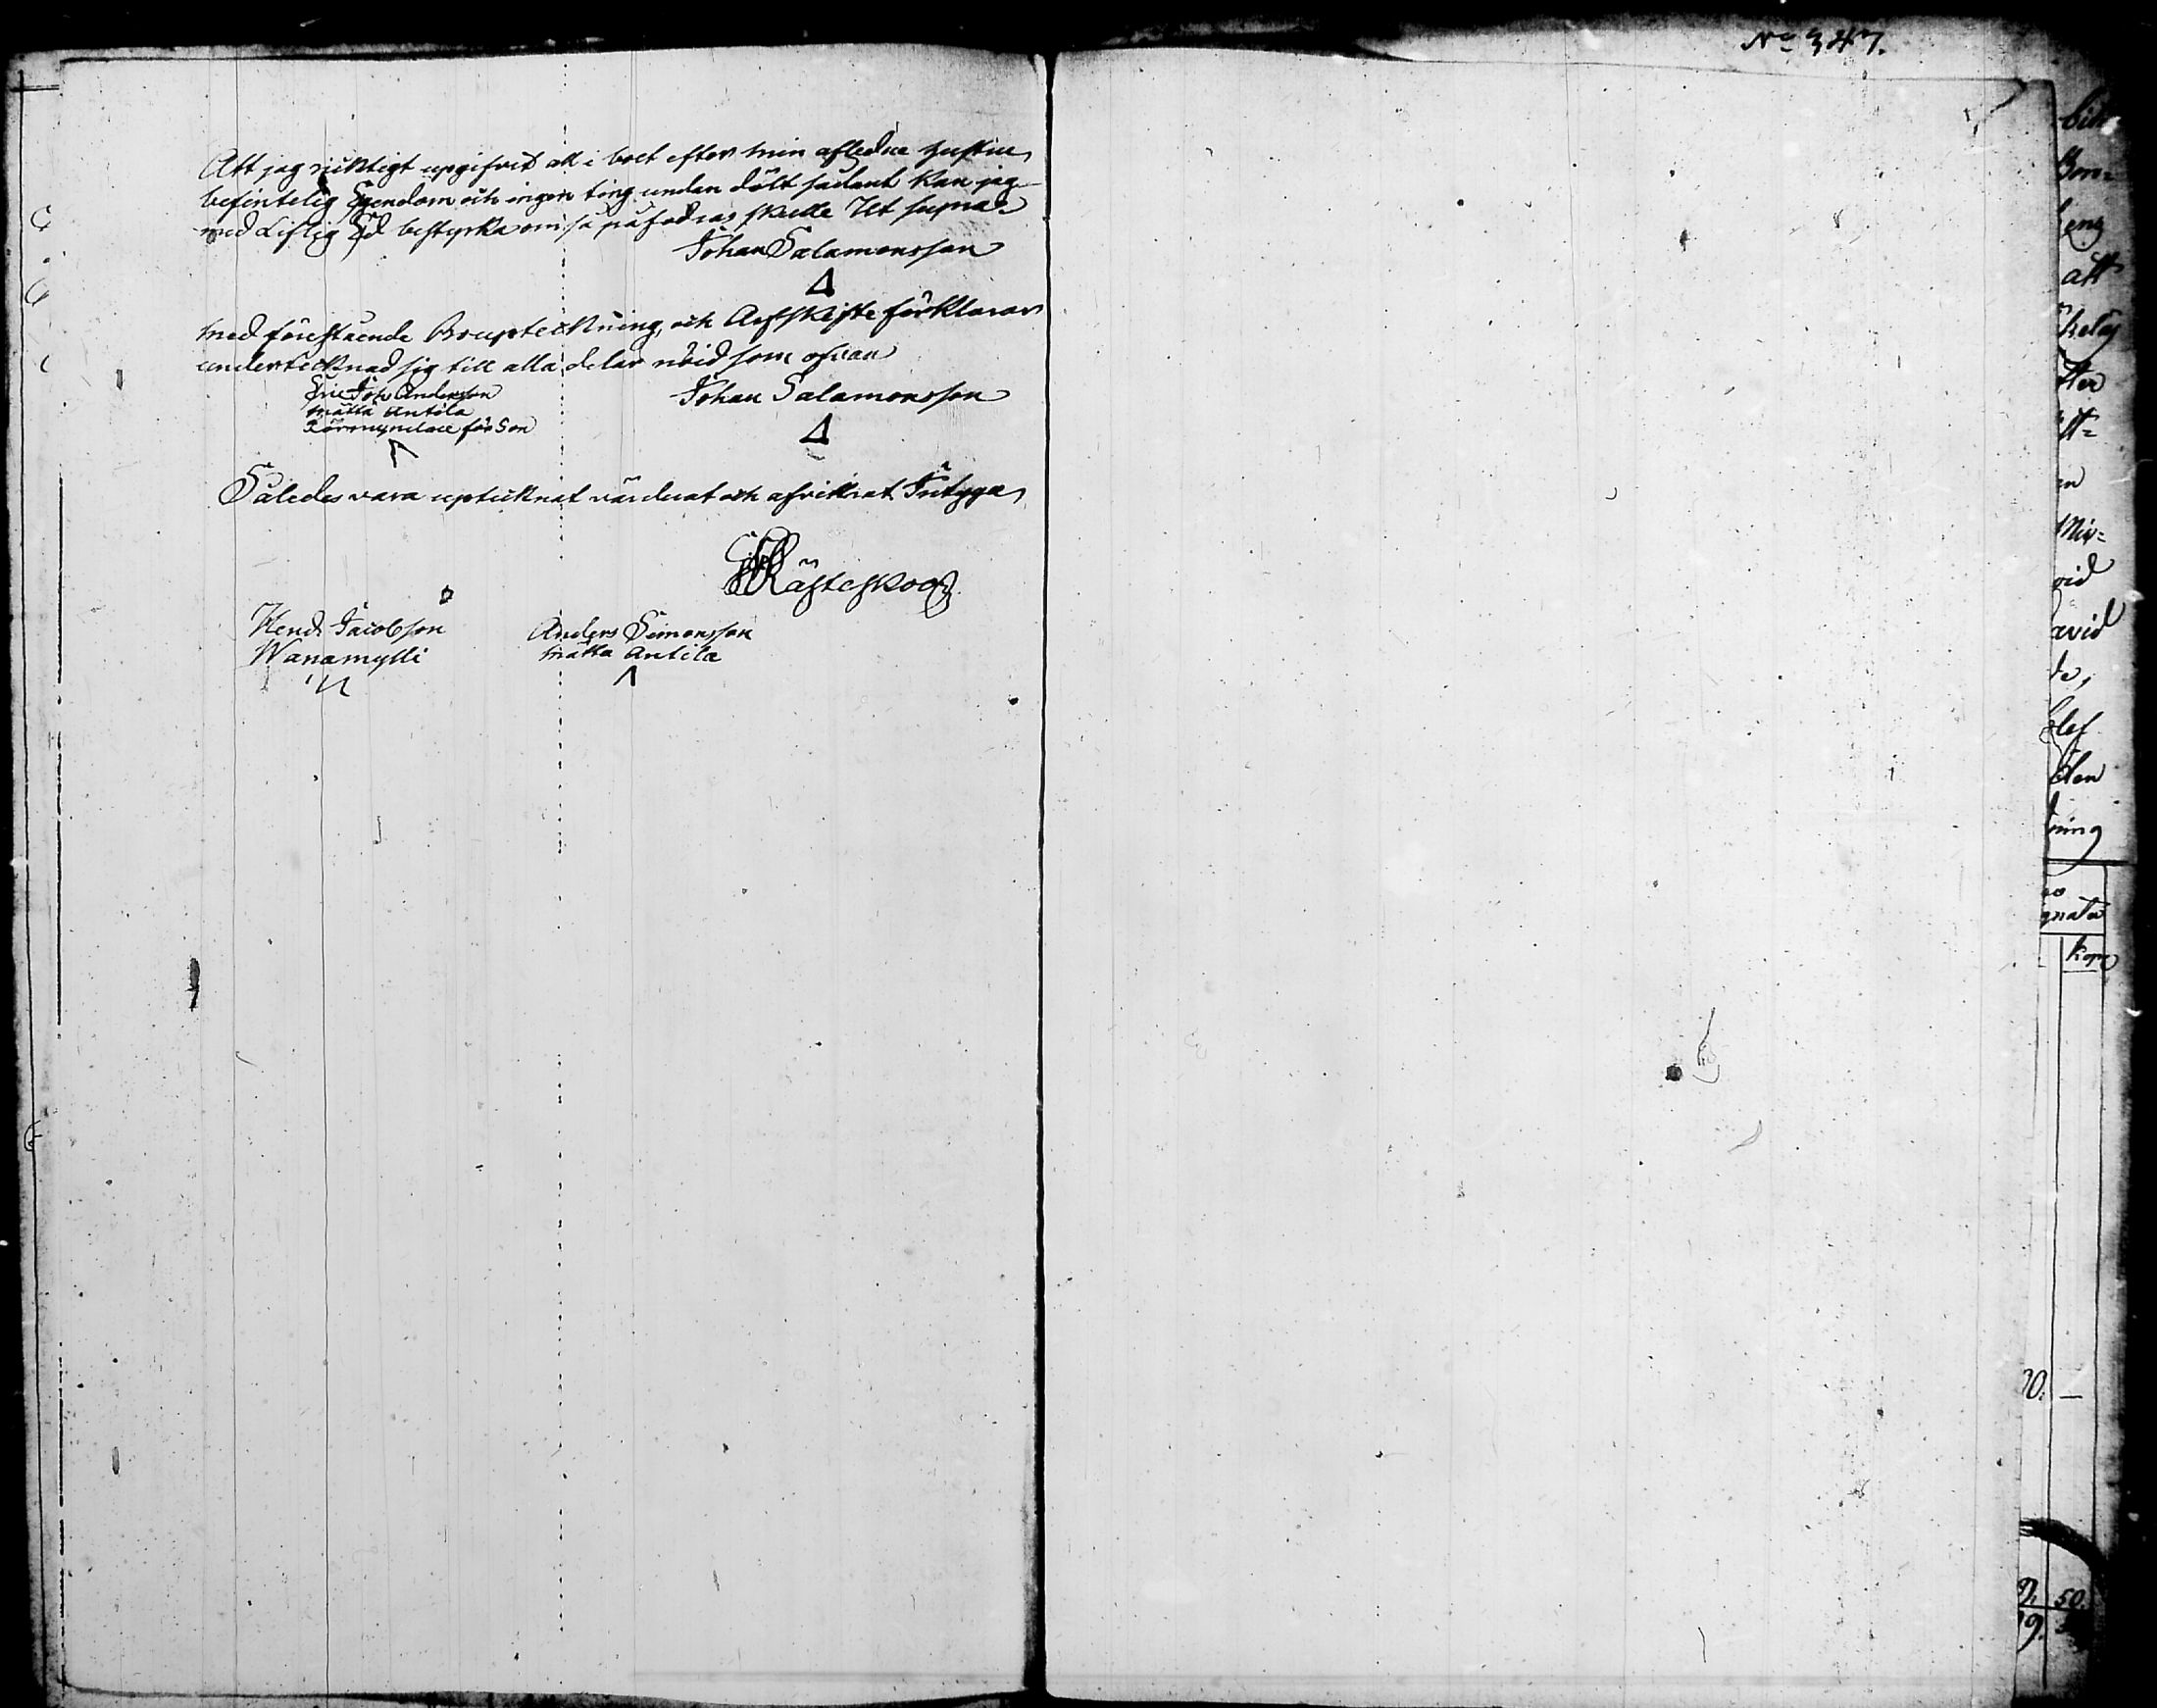 Nº 347.
Att jag ricktigt upgifvit all i boet efter min afledne hustru
befintelig Egendom och ingen ting undan dölt sådant kan jag
med Liflig Ed bestyrka om så påfodras skulle Ut supra
Johan Salamonsson
Med förestående Bouptekning, och Arfskifte förklarar
undertecknad sig till alla delar nöid som ofvan
Eric Joh: Andersson
Matta Antila
Förmyndare för Son
Johan Salamonsson
Således vara uptecknat värderat och afvittrat Intyga
Kästeskoog
Hend: Jacobson
Wanamylli
Anders Simonsson
Matta Antila
att
vid
avid
ning
Kop
50.